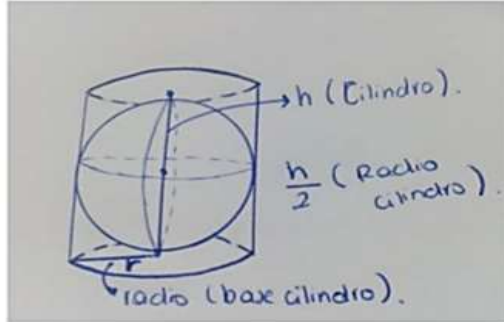 h (Cilindro).
h/2 (Radio
cilindro).
r
radio (base cilindro).